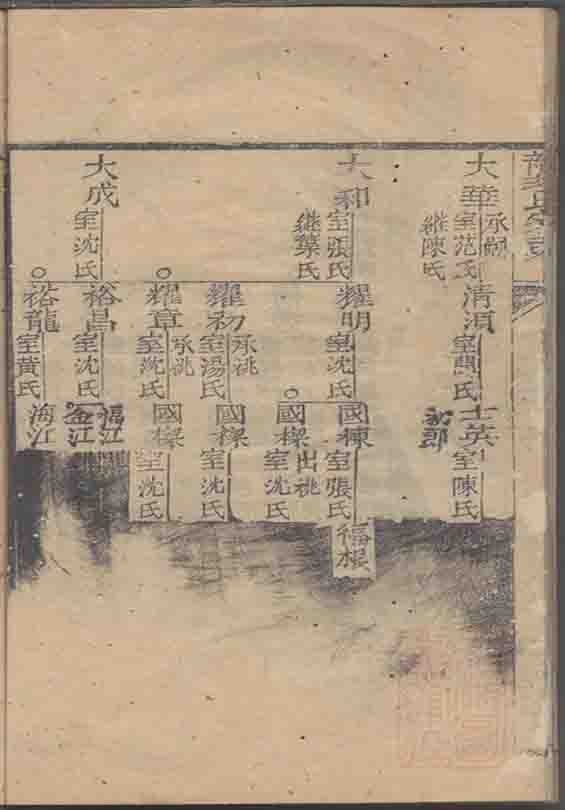 大華
承嗣
室范氏
繼陳氏
清源
士英
室陳氏
大和
室張氏
繼葉氏
耀明
室沈氏
國棟
室張氏
福根
國樑
出祧
室沈氏
耀初
承祧
室湯氏
國樑
室沈氏
耀章
承祧
室沈氏
國樑
室沈氏
大成
室沈氏
裕昌
室沈氏
福江
金江
裕龍
室黃氏
海江